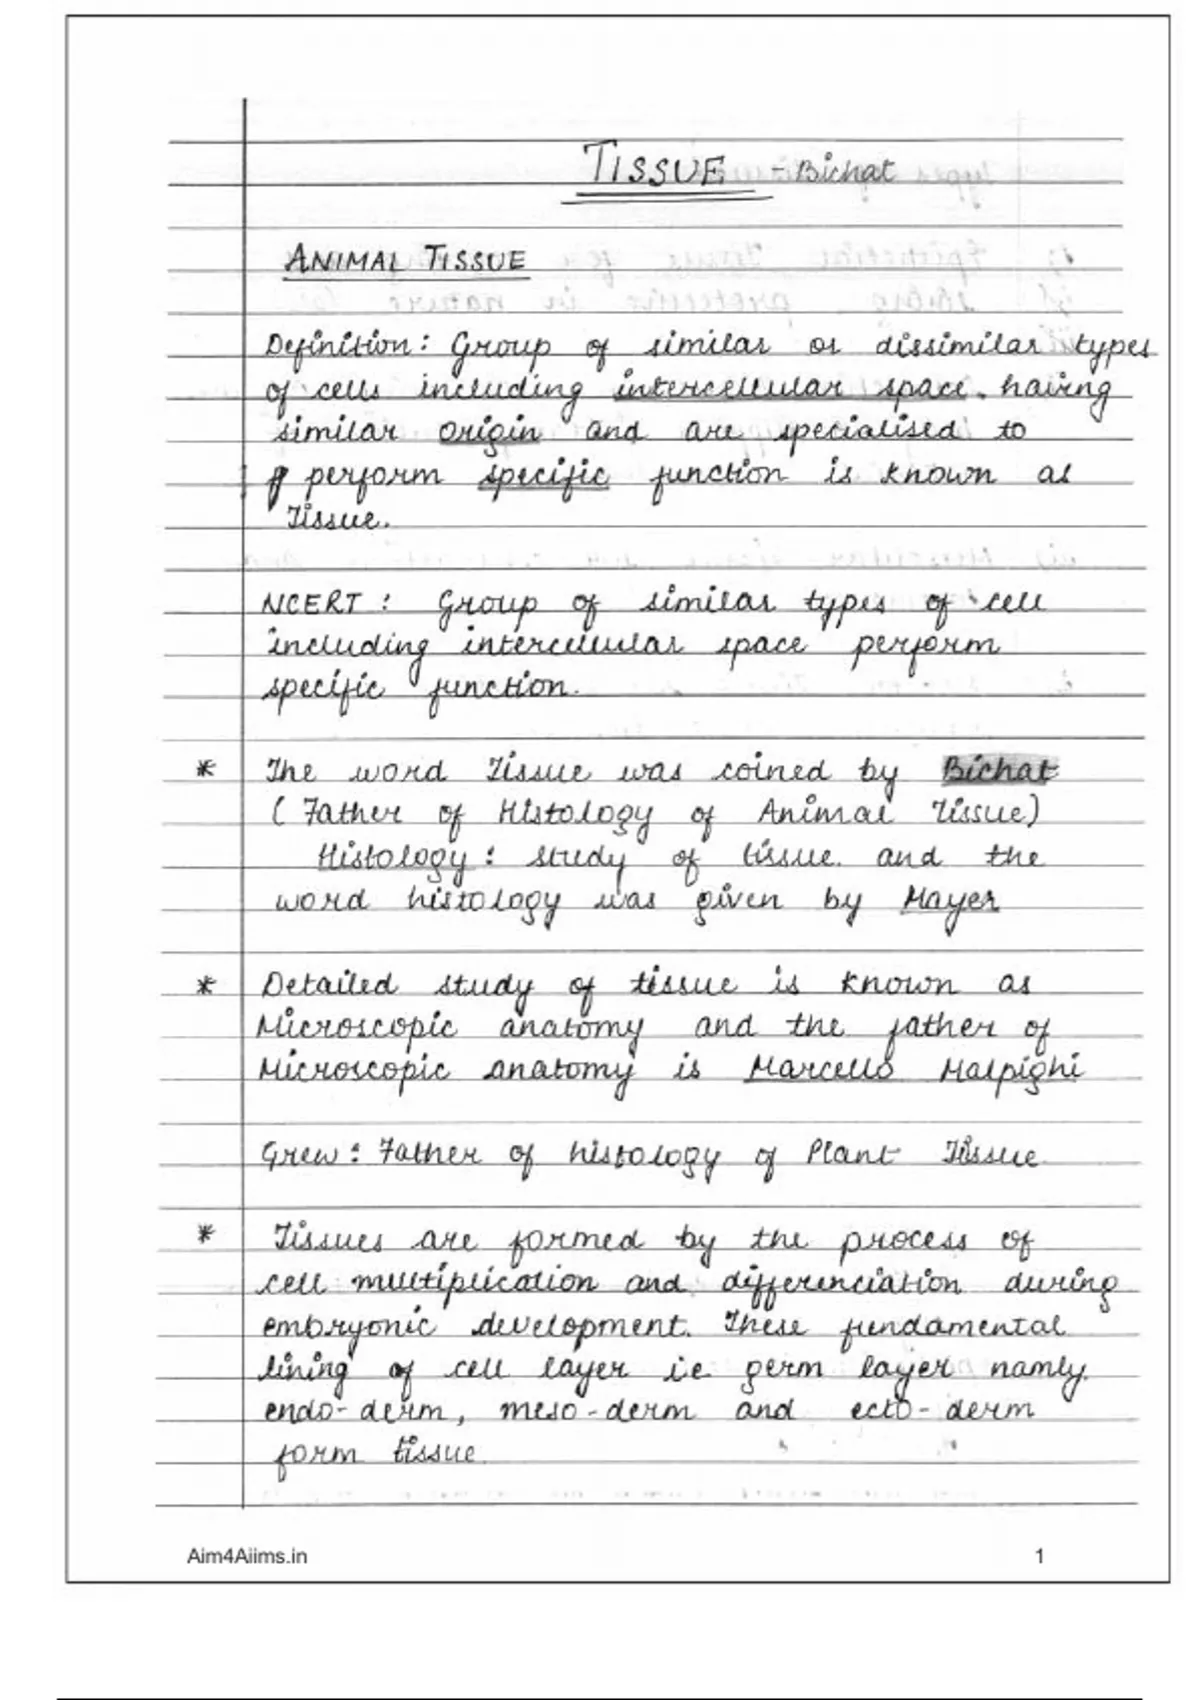 TISSUE - Bichat
ANIMAL TISSUE
Definition: Group of similar or dissimilar types
of cells including intercellular space. having
similar origin and are specialised to
perform specific function is known as
Tissue.
NCERT : Group of similar types of cell
including intercellular space perform
specific function.
* The word Tissue was coined by Bichat
( Father of Histology of Animal Tissue)
Histology : study of tissue. and the
word histology was given by Mayer
* Detailed study of tissue is known as
Microscopic anatomy and the father of
Microscopic anatomy is Marcello Malpighi
Grew : Father of histology of Plant Tissue
* Tissues are formed by the process of
cell multiplication and differenciation during
embryonic development. These fundamental
lining of cell layer i.e germ layer namly.
endo-derm, meso-derm and ecto-derm
form tissue.
Aim4Aiims.in 1